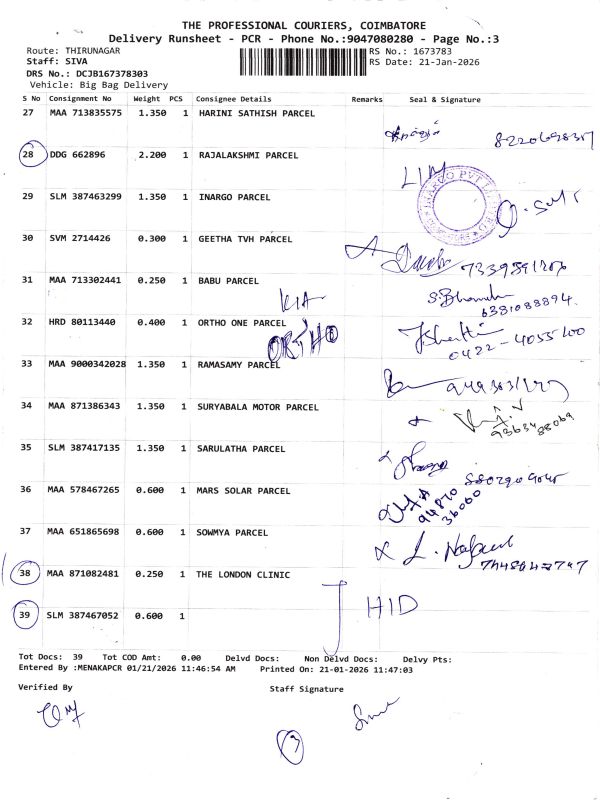 THE PROFESSIONAL COURIERS, COIMBATORE
Delivery Runsheet - PCR - Phone No.:9047080280 - Page No.:3
Route: THIRUNAGAR RS No.: 1673783
Staff: SIVA RS Date: 21-Jan-2026
DRS No.: DCJB167378303
Vehicle: Big Bag Delivery
S No Consignment No Weight PCS Consignee Details Remarks Seal & Signature
27 MAA 713835575 1.350 1 HARINI SATHISH PARCEL
28 DDG 662896 2.200 1 RAJALAKSHMI PARCEL
LIM
29 SLM 387463299 1.350 1 INARGO PARCEL
30 SVM 2714426 0.300 1 GEETHA TVH PARCEL
31 MAA 713302441 0.250 1 BABU PARCEL
KIA
6381088894
32 HRD 80113440 0.400 1 ORTHO ONE PARCEL
ORTHO
0422 - 4055100
33 MAA 9000342028 1.350 1 RAMASAMY PARCEL
34 MAA 871386343 1.350 1 SURYABALA MOTOR PARCEL
9363488069
35 SLM 387417135 1.350 1 SARULATHA PARCEL
36 MAA 578467265 0.600 1 MARS SOLAR PARCEL
94870
36060
37 MAA 651865698 0.600 1 SOWMYA PARCEL
38 MAA 871082481 0.250 1 THE LONDON CLINIC
39 SLM 387467052 0.600 1
HID
Tot Docs: 39 Tot COD Amt: 0.00 Delvd Docs: Non Delvd Docs: Delvy Pts:
Entered By :MENAKAPCR 01/21/2026 11:46:54 AM Printed On: 21-01-2026 11:47:03
Verified By Staff Signature
3